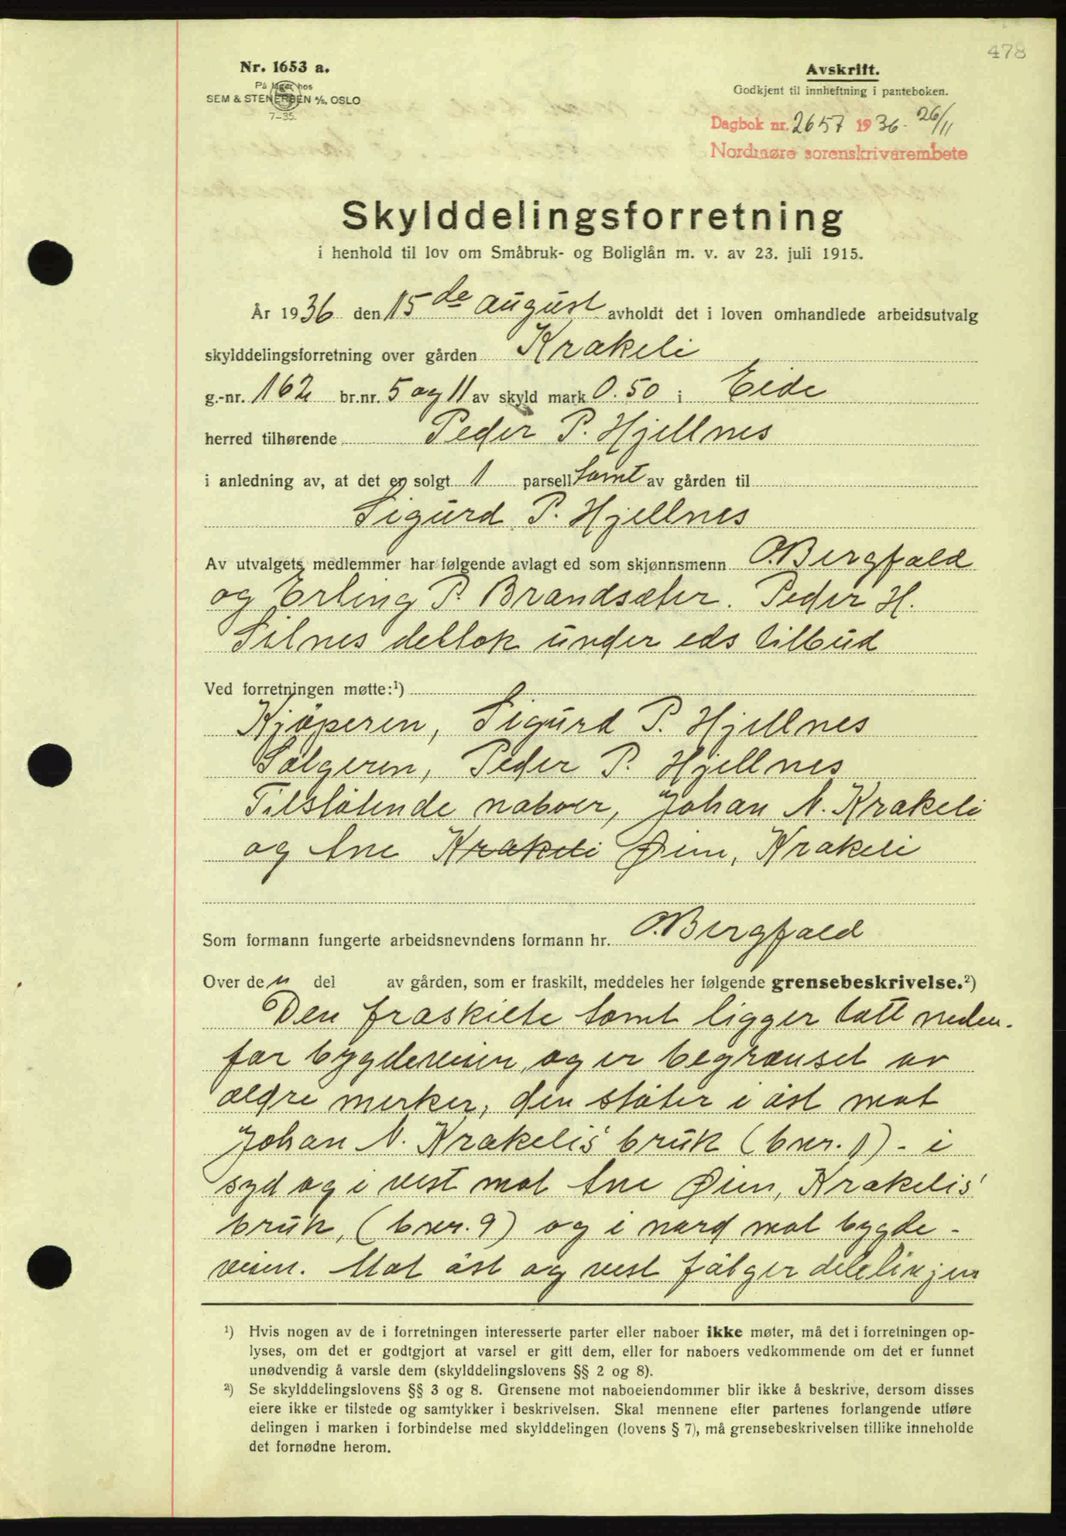 478
Nr. 1653 a.
På lager hos
SEM & STENERSEN A/S, OSLO
7-35.
Avskrift.
Godkjent til innheftning i panteboken.
Dagbok nr. 2657 1936 - 26/11
Nordmøre sorenskriverembete
Skylddelingsforretning
i henhold til lov om Småbruk- og Boliglån m. v. av 23. juli 1915.
År 1936 den 15de august avholdt det i loven omhandlede arbeidsutvalg
skylddelingsforretning over gården Krakeli
g.-nr. 162 br.nr. 5 og 11 av skyld mark 0.50 i Eide
herred tilhørende Peder P. Hjellnes
i anledning av, at det er solgt 1 parsell tomt av gården til
Sigurd P. Hjellnes
Av utvalgets medlemmer har følgende avlagt ed som skjønnsmenn O. Bergfald
og Erling P. Brandsæter. Peder H.
Silnes deltok under eds tilbud
Ved forretningen møtte:¹)
Kjøperen, Sigurd P. Hjellnes
Sælgeren, Peder P. Hjellnes
Tilstøtende naboer, Johan N. Krakeli
og Ane Krakeli Øien, Krakeli
Som formann fungerte arbeidsnevndens formann hr. O. Bergfald
Over den del av gården, som er fraskilt, meddeles her følgende grensebeskrivelse.²)
Den fraskilte tomt ligger tatt neden-
for bygdeveien, og er begrænset av
ældre merker, den støter i øst mot
Johan N. Krakelis' bruk (bnr. 1) - i
syd og i vest mot Ane Øien, Krakelis'
bruk, (bnr. 9) og i nord mot bygde-
veien. Mot øst og vest følger delelinjen
¹) Hvis nogen av de i forretningen interesserte parter eller naboer ikke møter, må det i forretningen op-
lyses, om det er godtgjort at varsel er gitt dem, eller for naboers vedkommende om det er funnet
unødvendig å varsle dem (skylddelingslovens §§ 2 og 8).
²) Se skylddelingslovens §§ 3 og 8. Grensene mot naboeiendommer blir ikke å beskrive, dersom disses
eiere ikke er tilstede og samtykker i beskrivelsen. Skal mennene efter partenes forlangende utføre
delingen i marken i forbindelse med skylddelingen (lovens § 7), må grensebeskrivelsen tillike inneholde
det fornødne herom.